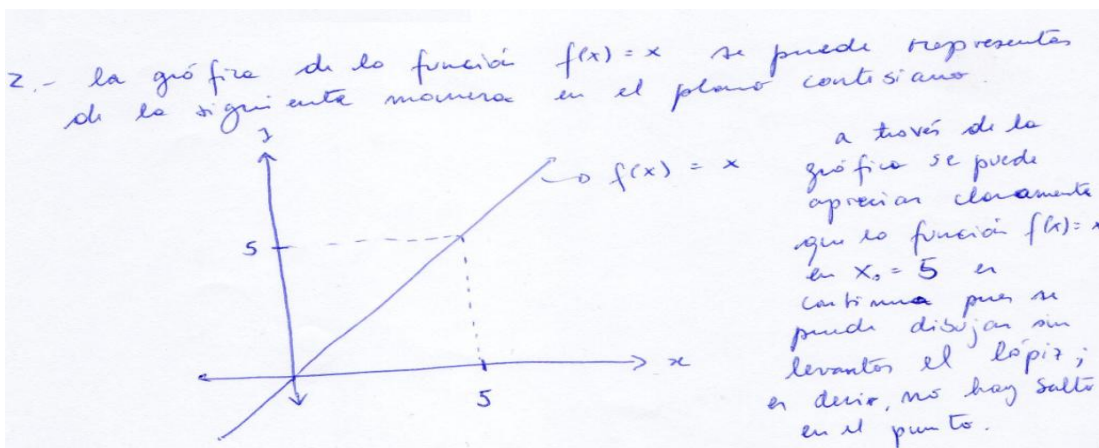 2.- la gráfica de la función f(x) = x se puede representar
de la siguiente manera en el plano cartesiano.
y
f(x) = x
5
x
5
a través de la
gráfica se puede
apreciar claramente
que la función f(x) = x
en x₀ = 5 es
continua pues se
puede dibujar sin
levantar el lápiz;
es decir, no hay salto
en el punto.